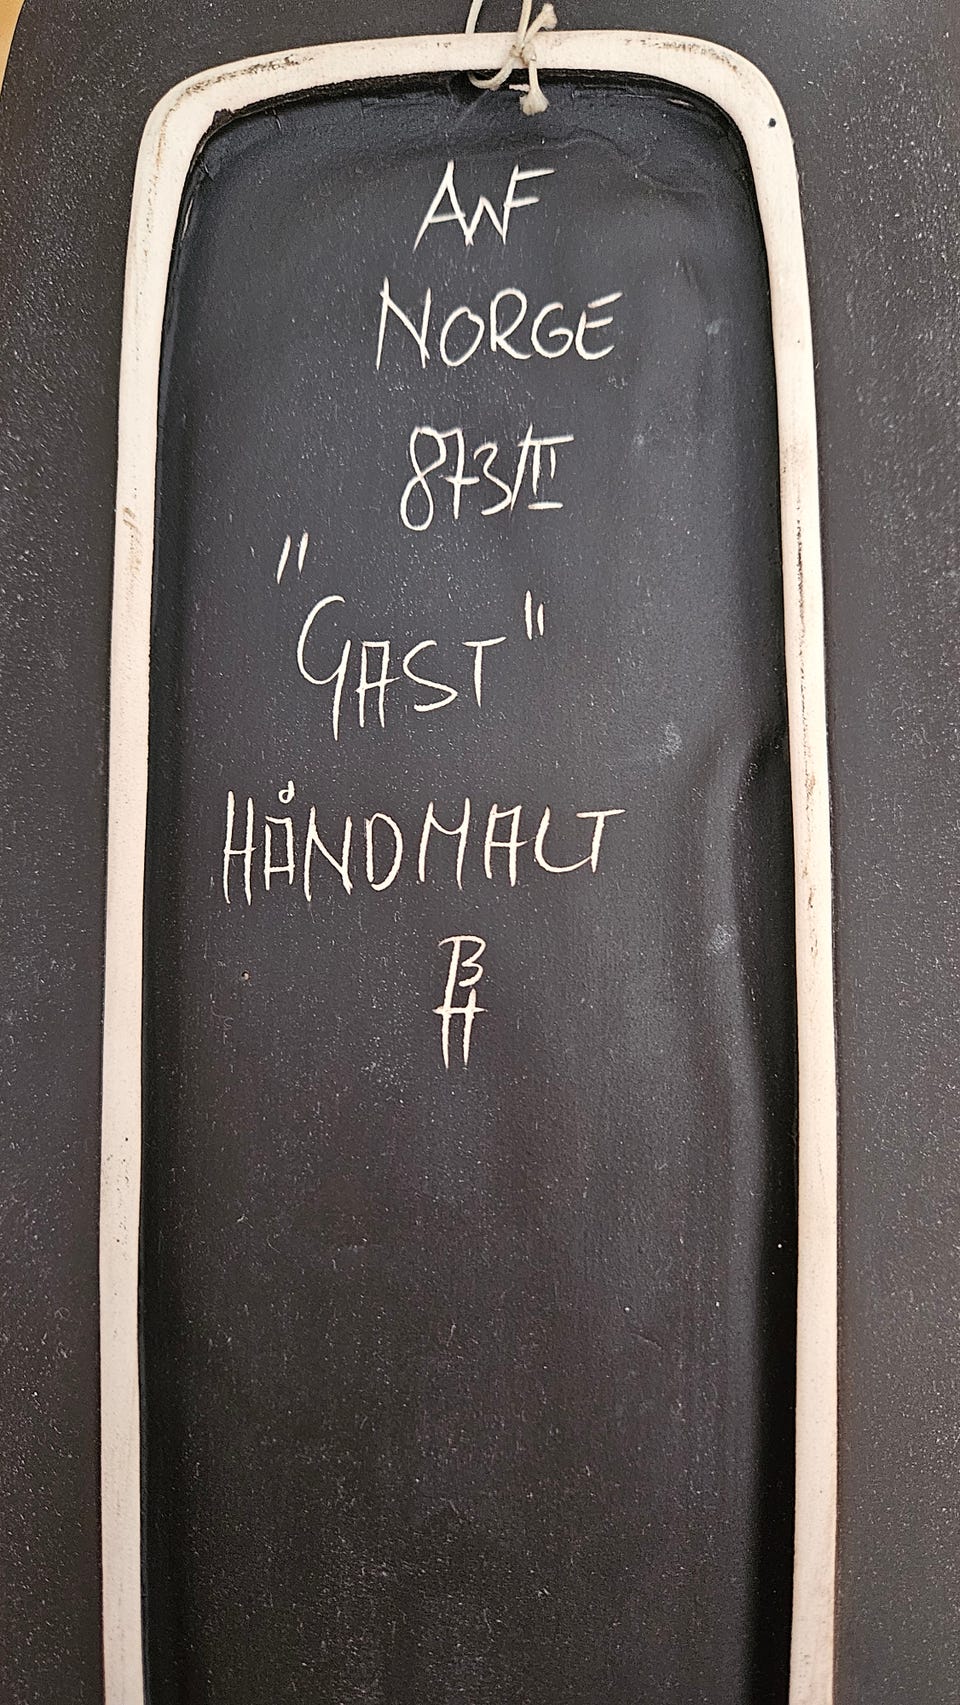 ANF
NORGE
873/III
"GAST"
HÅNDMALT
BH